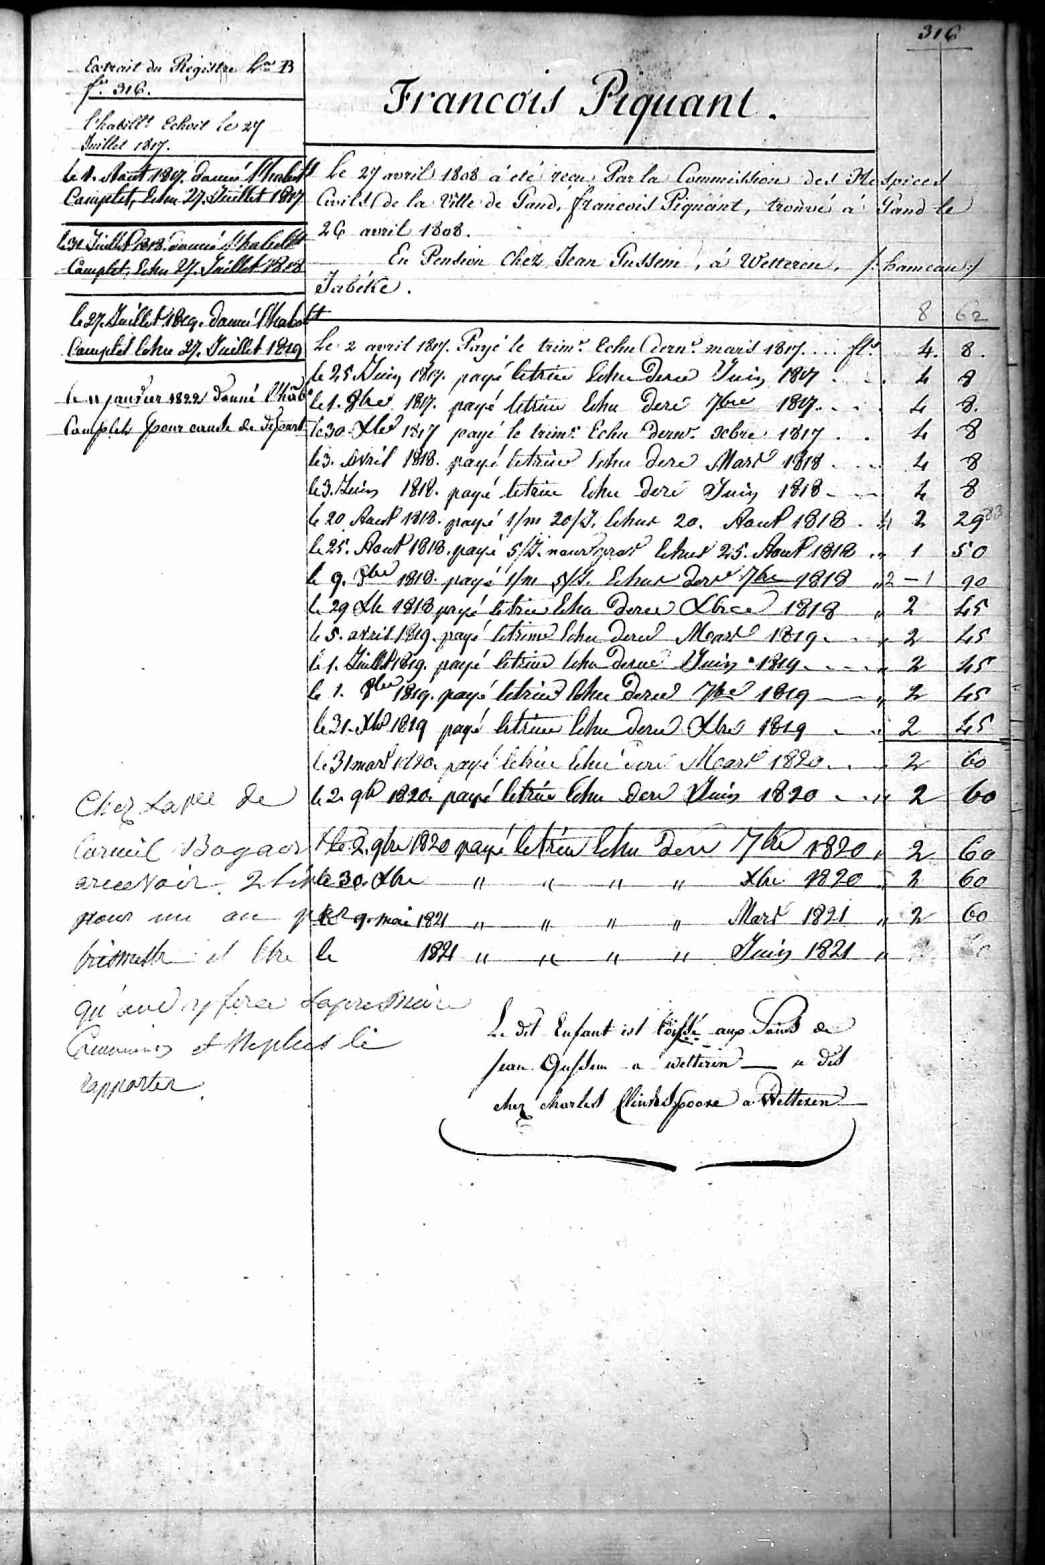 316
Extrait du Registre L.ra B
f.o 316.
l'habill.t Echoit le 27
Juillet 1817.
le 1. Aout 1817. donné l'habill.t
Complet, Echu 27. Juillet 1817
le 31 Juillet 1818. donné l'habill.t
Complet, Echu 27. Juillet 1818
le 27. Juillet 1819. donné l'habill.t
Complet Echu 27. Juillet 1819
le 11 janvier 1822 donné l'hab.t
Complet pour cause de départ
Francois Piquant.
Le 27 avril 1808 à été reçu Par la Commission des Hospices
Civils de la Ville de Gand, francois Piquant, trouvé à Gand le
26 avril 1808.
En Pension Chez Jean Gussem, à Wetteren, /: hameau :/
Jabéke.
8 62
Le 2 avril 1817. Payé le trim.e Echu dern.r mars 1817 . . . fl.s 4. 8.
le 25 Juin 1817. payé le trim Echu dere Juin 1817 . . . 4 8
le 1. 8bre 1817. payé le trim Echu dere 7bre 1817. . . . 4 8.
le 30 Xbre 1817 payé le trim.e Echu dern.r Xbre 1817 . . 4 8
le 3. Avril 1818. payé le trim Echu dere Mars 1818 . . . 4 8
le 3. Juin 1818. payé le trim Echu dere Juin 1818 . . 4 8
le 20 Aout 1818. payé 1/m 20/J. Echus 20. Aout 1818 . 2 29
le 25. Aout 1818. payé 5/J. Echus 25. Aout 1818 " 1 50
le 9. 8bre 1818. payé 1/m 5/J. Echus dere 7bre 1818 " 2 – 1 90
le 29 Xbre 1818 payé le trim Echu dere Xbre 1818 " 2 45
le 5. avril 1819. payé le trim Echu dere Mars 1819 . . " 2 45
le 1. Juillet 1819. payé le trim Echu dere Juin 1819 . . . " 2 45
le 1. 8bre 1819. payé le trim Echu dere 7bre 1819 — " 2 45
le 31. Xbre 1819 payé le trim Echu dere Xbre 1819 . . 2 45
le 31 mars 1820. payé le trim Echu dere Mars 1820 . . 2 60
le 2. 9bre 1820. payé le trim Echu dere Juin 1820 . . " 2 60
le 2. 9bre 1820 payé le trim Echu dere 7bre 1820 " 2 60
le 30. Xbre " " " " Xbre 1820 " 2 60
le 9. mai 1821 " " " " Mars 1821 " 2 60
le 1821 " " " " Juin 1821 "
Chez de
Corneil Bogaer
arecevoir. 2
pour un an
et
qu'
et le
rapporter.
Le dit Enfant est laissé aux Soins de
jean Gussem a wetteren — a dit
chez charles a Wetteren